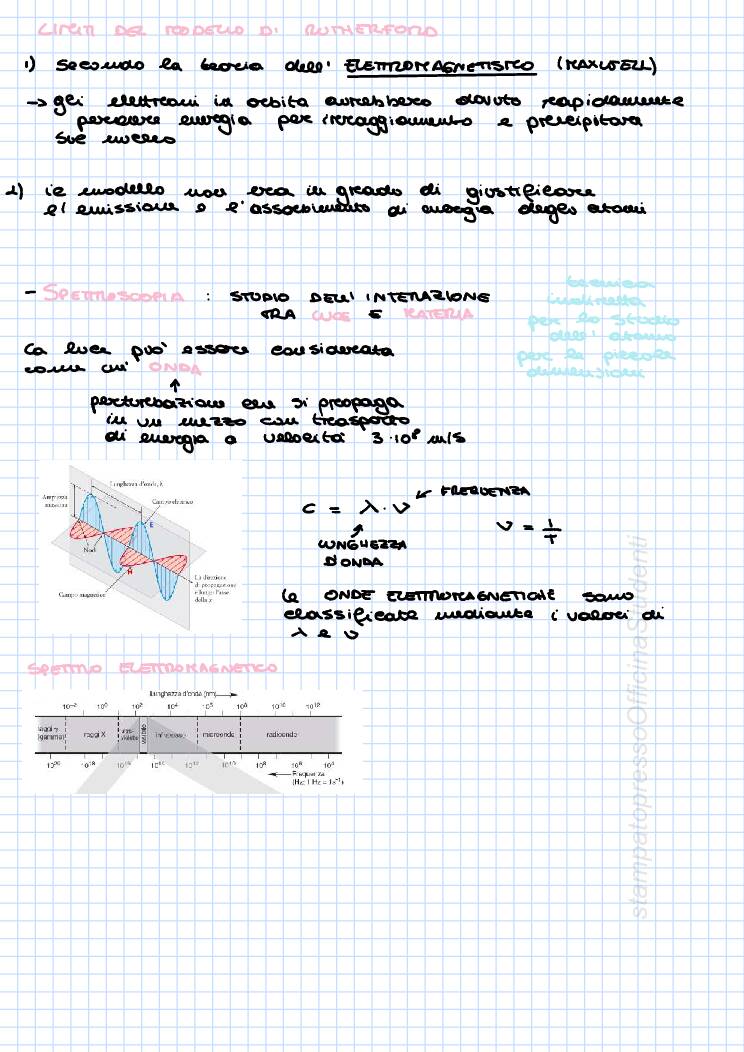 LIMITI DEL MODELLO DI RUTHERFORD
1) secondo la teoria dell' ELETTROMAGNETISMO (MAXWELL)
→ gli elettroni in orbita avrebbero dovuto rapidamente
perdere energia per irraggiamento e precipitare
sul nucleo
2) il modello non era in grado di giustificare
l'emissione e l'assorbimento di energia degli atomi
- SPETTROSCOPIA : STUDIO DELL'INTERAZIONE
TRA LUCE E MATERIA
tecnica
indiretta
per lo studio
dell'atomo
per le piccole
dimensioni
La luce può essere considerata
come un' ONDA
↑
perturbazione che si propaga
in un mezzo con trasporto
di energia a velocità 3·10⁸ m/s
Lunghezza d'onda, λ
Ampiezza
massima
Campo elettrico
E
Nodi
M
Campo magnetico
La direzione
di propagazione
è lungo l'asse
delle x
c = λ · ν ↙ FREQUENZA
LUNGHEZZA
D'ONDA
ν = 1/T
Le ONDE ELETTROMAGNETICHE sono
classificate mediante i valori di
λ e ν
SPETTRO ELETTROMAGNETICO
lunghezza d'onda (nm)
10⁻² 10⁰ 10² 10⁴ 10⁶ 10⁸ 10¹⁰ 10¹²
raggi γ
(gamma)
raggi X
ultra-
violetto
visibile
infrarosso
microonde
radioonde
10²⁰ 10¹⁸ 10¹⁶ 10¹⁴ 10¹² 10¹⁰ 10⁸ 10⁶ 10⁴
Frequenza
(Hz; 1 Hz = 1s⁻¹)
stampatopressoOfficinaStudenti